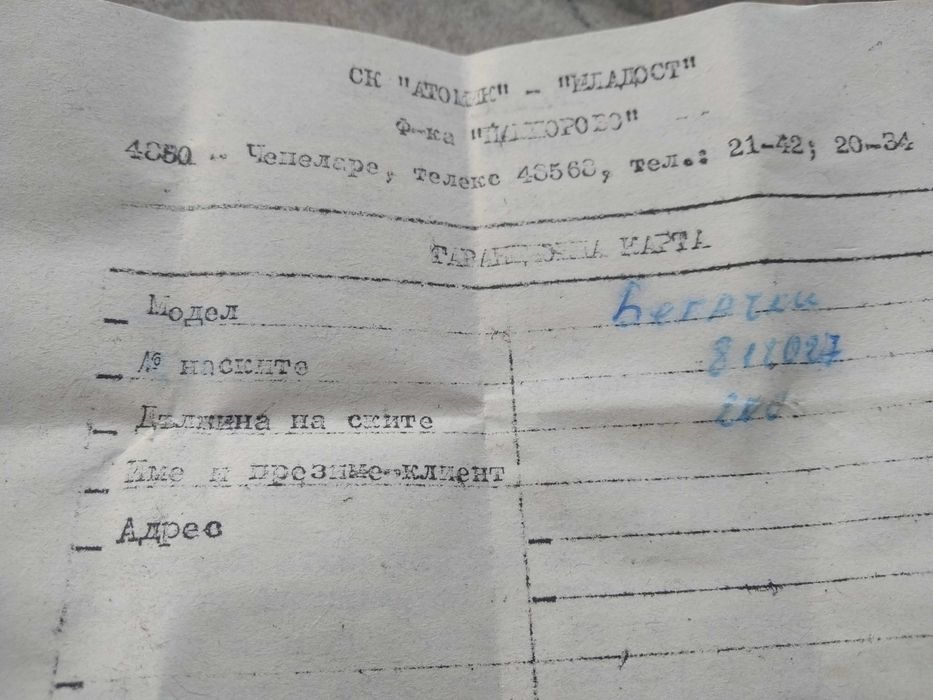 СК "АТОМИК" - "МЛАДОСТ"
Ф-ка "ПАМПОРОВО"
4850 - Чепеларе, телекс 48568, тел.: 21-42; 20-34
ГАРАНЦИОННА КАРТА
Модел Бегачки
№ наските 811027
Дължина на ските
Име и презиме-клиент
Адрес